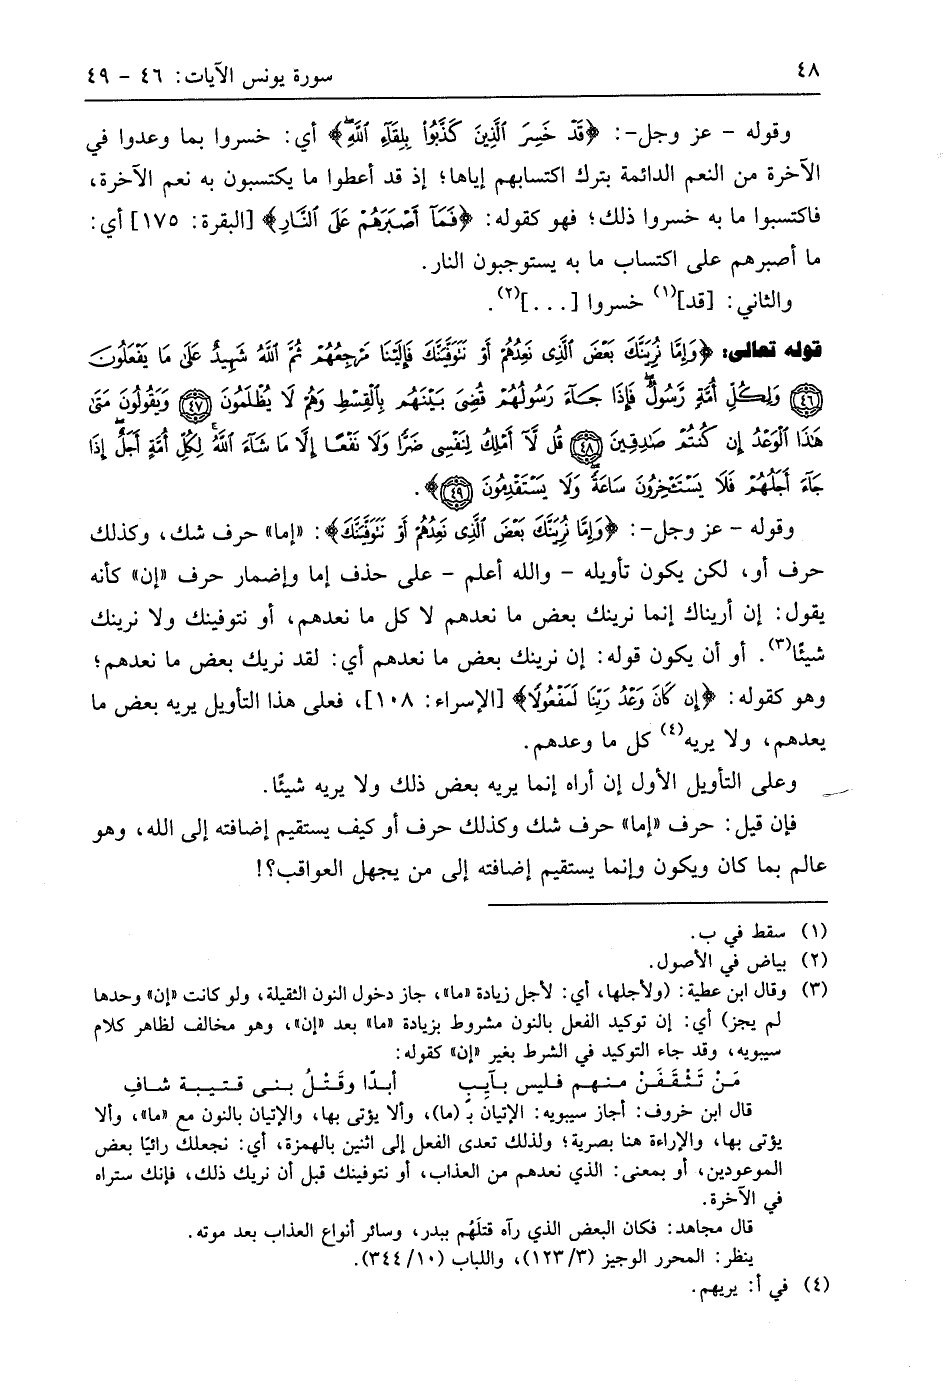 ٤٨
سورة يونس الآيات: ٤٦ - ٤٩
وقوله - عز وجل-: ﴿قَدْ خَسِرَ ٱلَّذِينَ كَذَّبُوا۟ بِلِقَآءِ ٱللَّهِۖ﴾ أي: خسروا بما وعدوا في
الآخرة من النعم الدائمة بترك اكتسابهم إياها؛ إذ قد أعطوا ما يكتسبون به نعم الآخرة،
فاكتسبوا ما به خسروا ذلك؛ فهو كقوله: ﴿فَمَآ أَصْبَرَهُمْ عَلَى ٱلنَّارِ﴾ [البقرة: ١٧٥] أي:
ما أصبرهم على اكتساب ما به يستوجبون النار.
والثاني: [قد](١) خسروا [...](٢).
قوله تعالى: ﴿وَإِمَّا نُرِيَنَّكَ بَعْضَ ٱلَّذِى نَعِدُهُمْ أَوْ نَتَوَفَّيَنَّكَ فَإِلَيْنَا مَرْجِعُهُمْ ثُمَّ ٱللَّهُ شَهِيدٌ عَلَىٰ مَا يَفْعَلُونَ
﴿٤٦﴾ وَلِكُلِّ أُمَّةٍ رَّسُولٌۖ فَإِذَا جَآءَ رَسُولُهُمْ قُضِىَ بَيْنَهُم بِٱلْقِسْطِ وَهُمْ لَا يُظْلَمُونَ ﴿٤٧﴾ وَيَقُولُونَ مَتَىٰ
هَٰذَا ٱلْوَعْدُ إِن كُنتُمْ صَٰدِقِينَ ﴿٤٨﴾ قُل لَّآ أَمْلِكُ لِنَفْسِى ضَرًّا وَلَا نَفْعًا إِلَّا مَا شَآءَ ٱللَّهُۗ لِكُلِّ أُمَّةٍ أَجَلٌۚ إِذَا
جَآءَ أَجَلُهُمْ فَلَا يَسْتَـْٔخِرُونَ سَاعَةًۖ وَلَا يَسْتَقْدِمُونَ ﴿٤٩﴾﴾.
وقوله - عز وجل-: ﴿وَإِمَّا نُرِيَنَّكَ بَعْضَ ٱلَّذِى نَعِدُهُمْ أَوْ نَتَوَفَّيَنَّكَ﴾: «إما» حرف شك، وكذلك
حرف أو، لكن يكون تأويله - والله أعلم - على حذف إما وإضمار حرف «إن» كأنه
يقول: إن أريناك إنما نرينك بعض ما نعدهم لا كل ما نعدهم، أو نتوفينك ولا نرينك
شيئًا(٣). أو أن يكون قوله: إن نرينك بعض ما نعدهم أي: لقد نريك بعض ما نعدهم؛
وهو كقوله: ﴿إِن كَانَ وَعْدُ رَبِّنَا لَمَفْعُولًا﴾ [الإسراء: ١٠٨]، فعلى هذا التأويل يريه بعض ما
يعدهم، ولا يريه(٤) كل ما وعدهم.
وعلى التأويل الأول إن أراه إنما يريه بعض ذلك ولا يريه شيئًا.
فإن قيل: حرف «إما» حرف شك وكذلك حرف أو كيف يستقيم إضافته إلى الله، وهو
عالم بما كان ويكون وإنما يستقيم إضافته إلى من يجهل العواقب؟!
(١) سقط في ب.
(٢) بياض في الأصول.
(٣) وقال ابن عطية: (ولأجلها، أي: لأجل زيادة «ما»، جاز دخول النون الثقيلة، ولو كانت «إن» وحدها
لم يجز) أي: إن توكيد الفعل بالنون مشروط بزيادة «ما» بعد «إن»، وهو مخالف لظاهر كلام
سيبويه، وقد جاء التوكيد في الشرط بغير «إن» كقوله:
مَنْ تَثْقَفَنْ منهم فليس بآيِبٍ أبدًا وقَتْلُ بنى قتيبة شافِ
قال ابن خروف: أجاز سيبويه: الإتيان بـ (ما)، وألا يؤتى بها، والإتيان بالنون مع «ما»، وألا
يؤتى بها، والإراءة هنا بصرية؛ ولذلك تعدى الفعل إلى اثنين بالهمزة، أي: نجعلك رائيًا بعض
الموعودين، أو بمعنى: الذي نعدهم من العذاب، أو نتوفينك قبل أن نريك ذلك، فإنك ستراه
في الآخرة.
قال مجاهد: فكان البعض الذي رآه قتلَهُم ببدر، وسائر أنواع العذاب بعد موته.
ينظر: المحرر الوجيز (٣/ ١٢٣)، واللباب (١٠/ ٣٤٤).
(٤) في أ: يريهم.